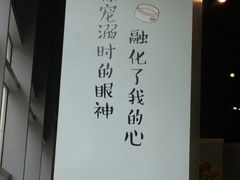 宠溺时的眼神
融化了我的心